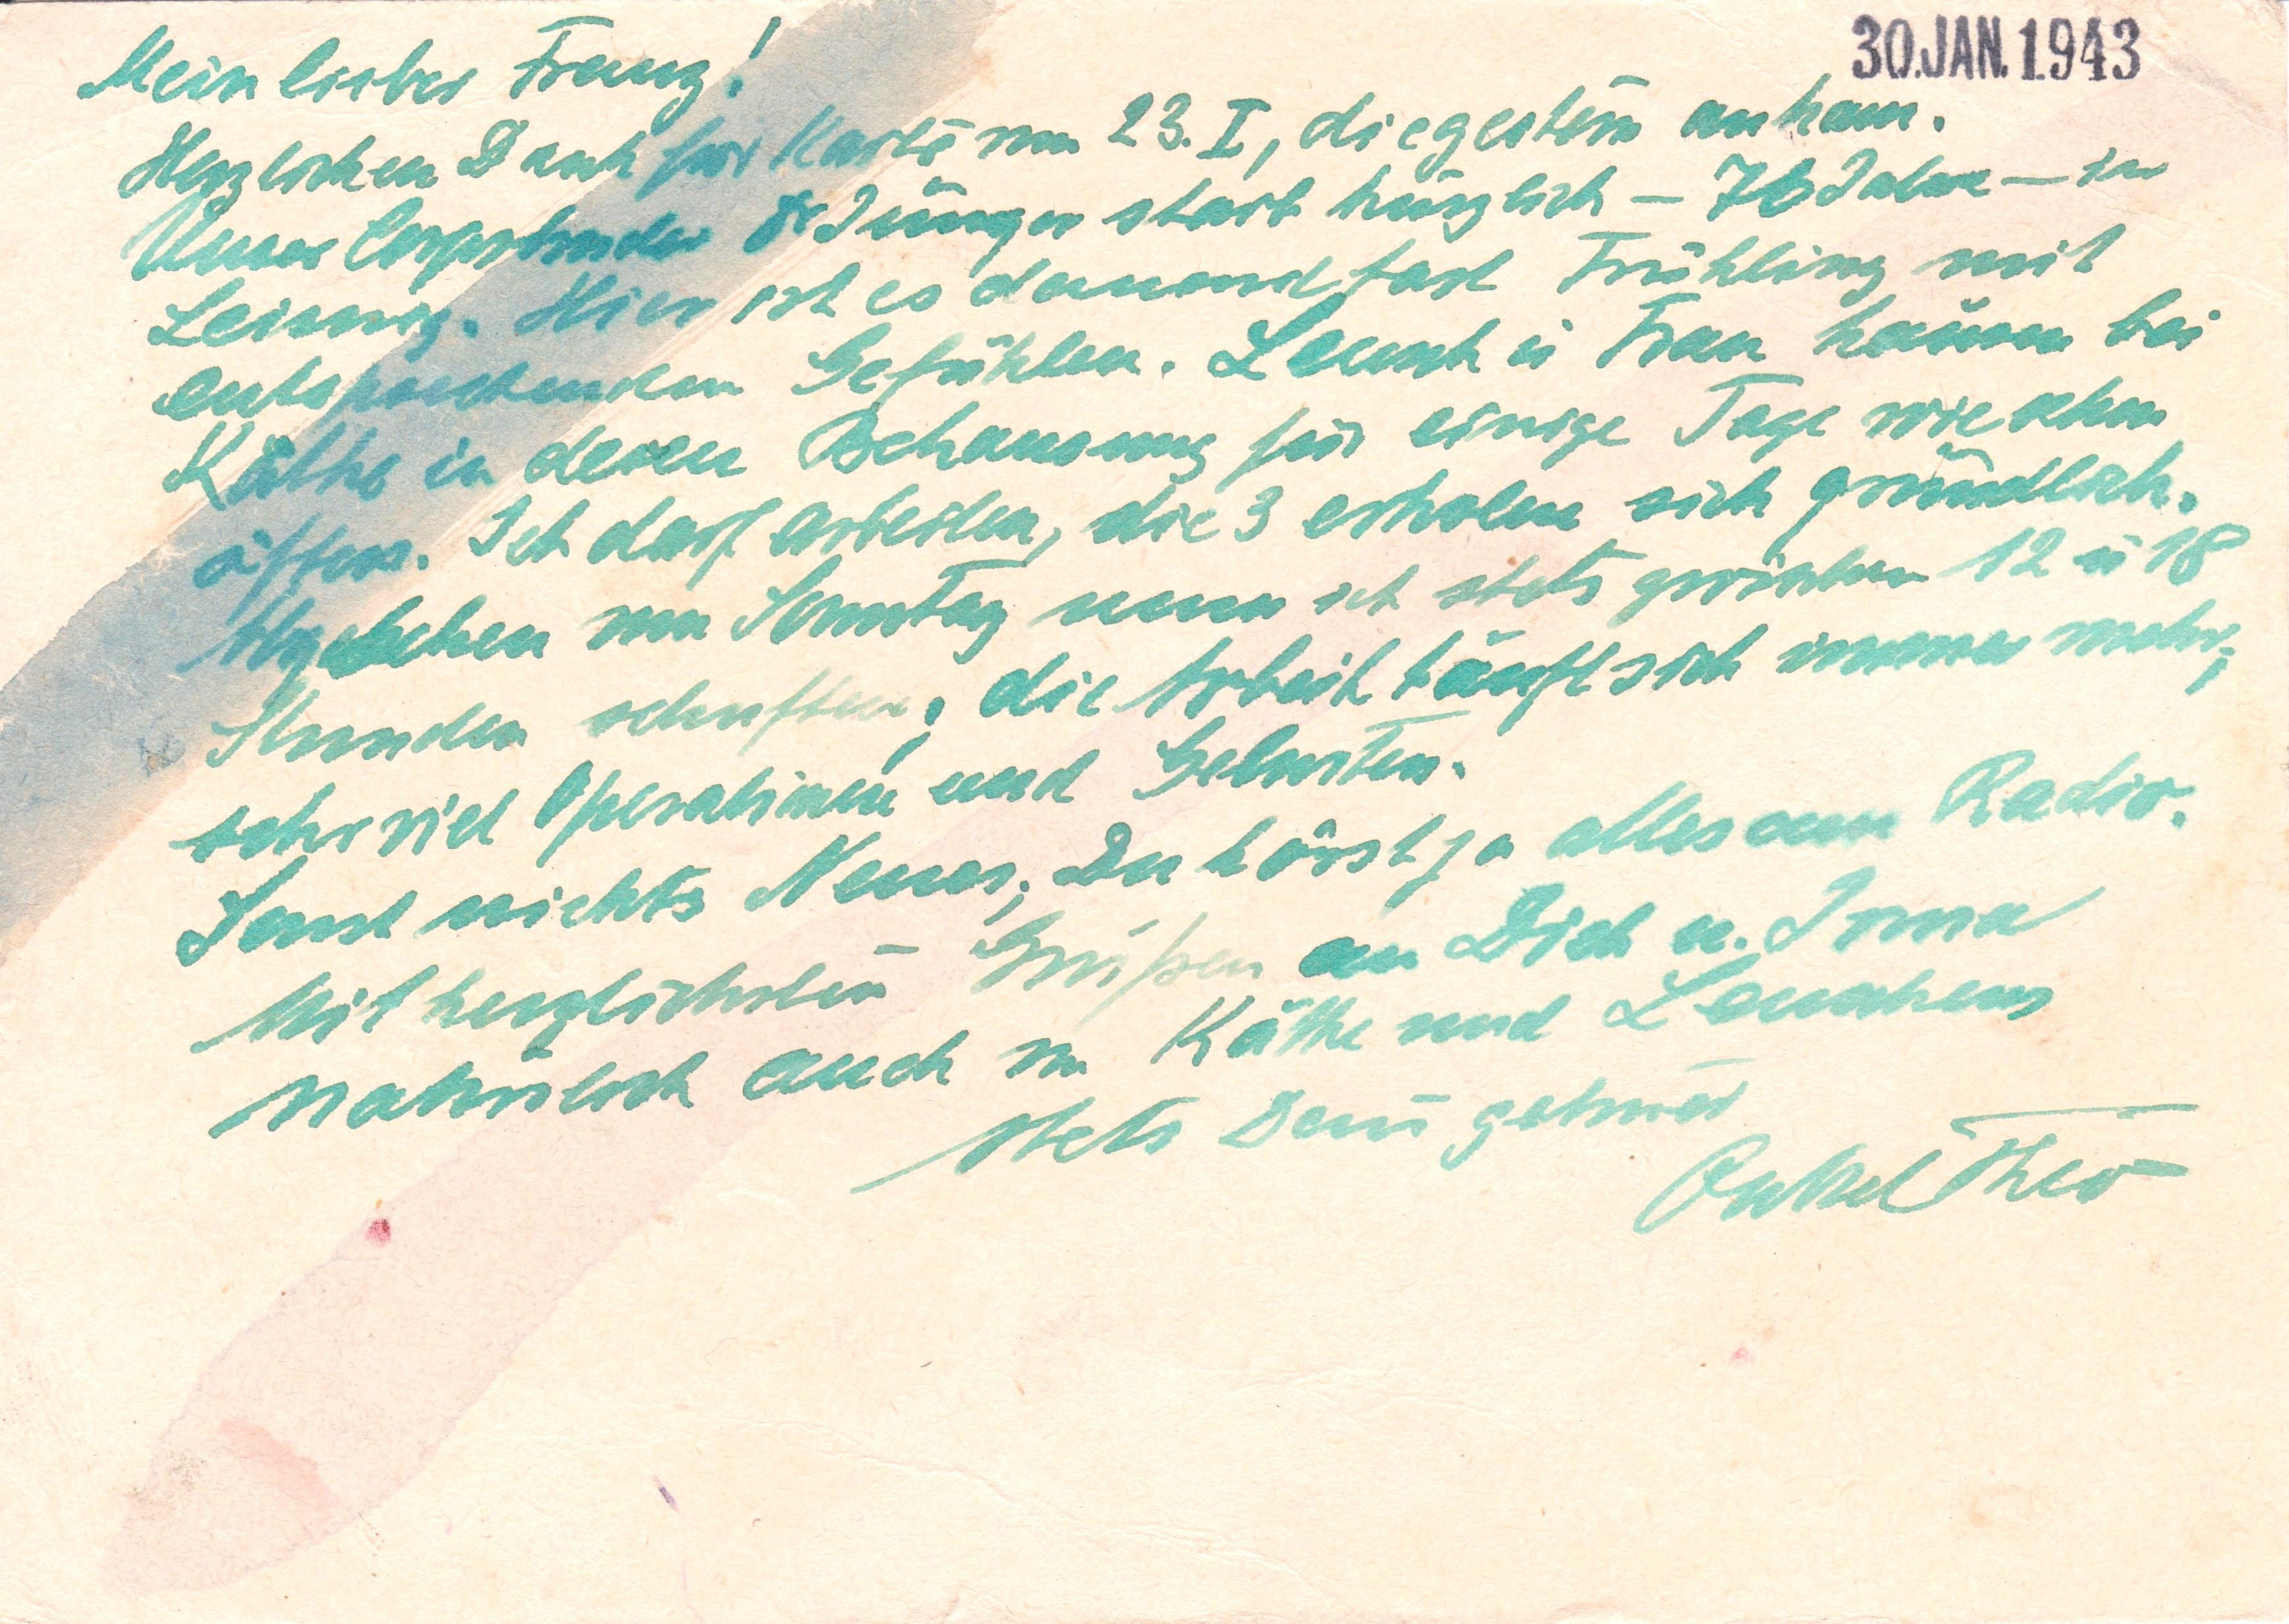 30. JAN. 1943
Mein lieber Franz!
Herzlichen Dank für Karte vom 23. I, die gestern ankam.
Unser Corpsbruder Dr Jünger starb kürzlich – 76 Jahre – in
Leisnig. Hier ist es dauernd fast Frühling mit
entsprechenden Gefühlen. Leuschs u Frau kamen bei
Käthe in deren Behausung für einige Tage wie schon
öfters. Ich darf arbeiten, die 3 erholen sich gründlich.
Abgesehen vom Sonntag muss ich stets zwischen 12 u 18
Stunden schuften; die Arbeit häuft sich immer mehr,
sehr viel Operationen und Geburten.
Sonst nichts Neues; Du hörst ja alles am Radio.
Mit herzlichsten Grüßen an Dich u. Irma
natürlich auch von Käthe und
stets Dein getreuer
Onkel Theo